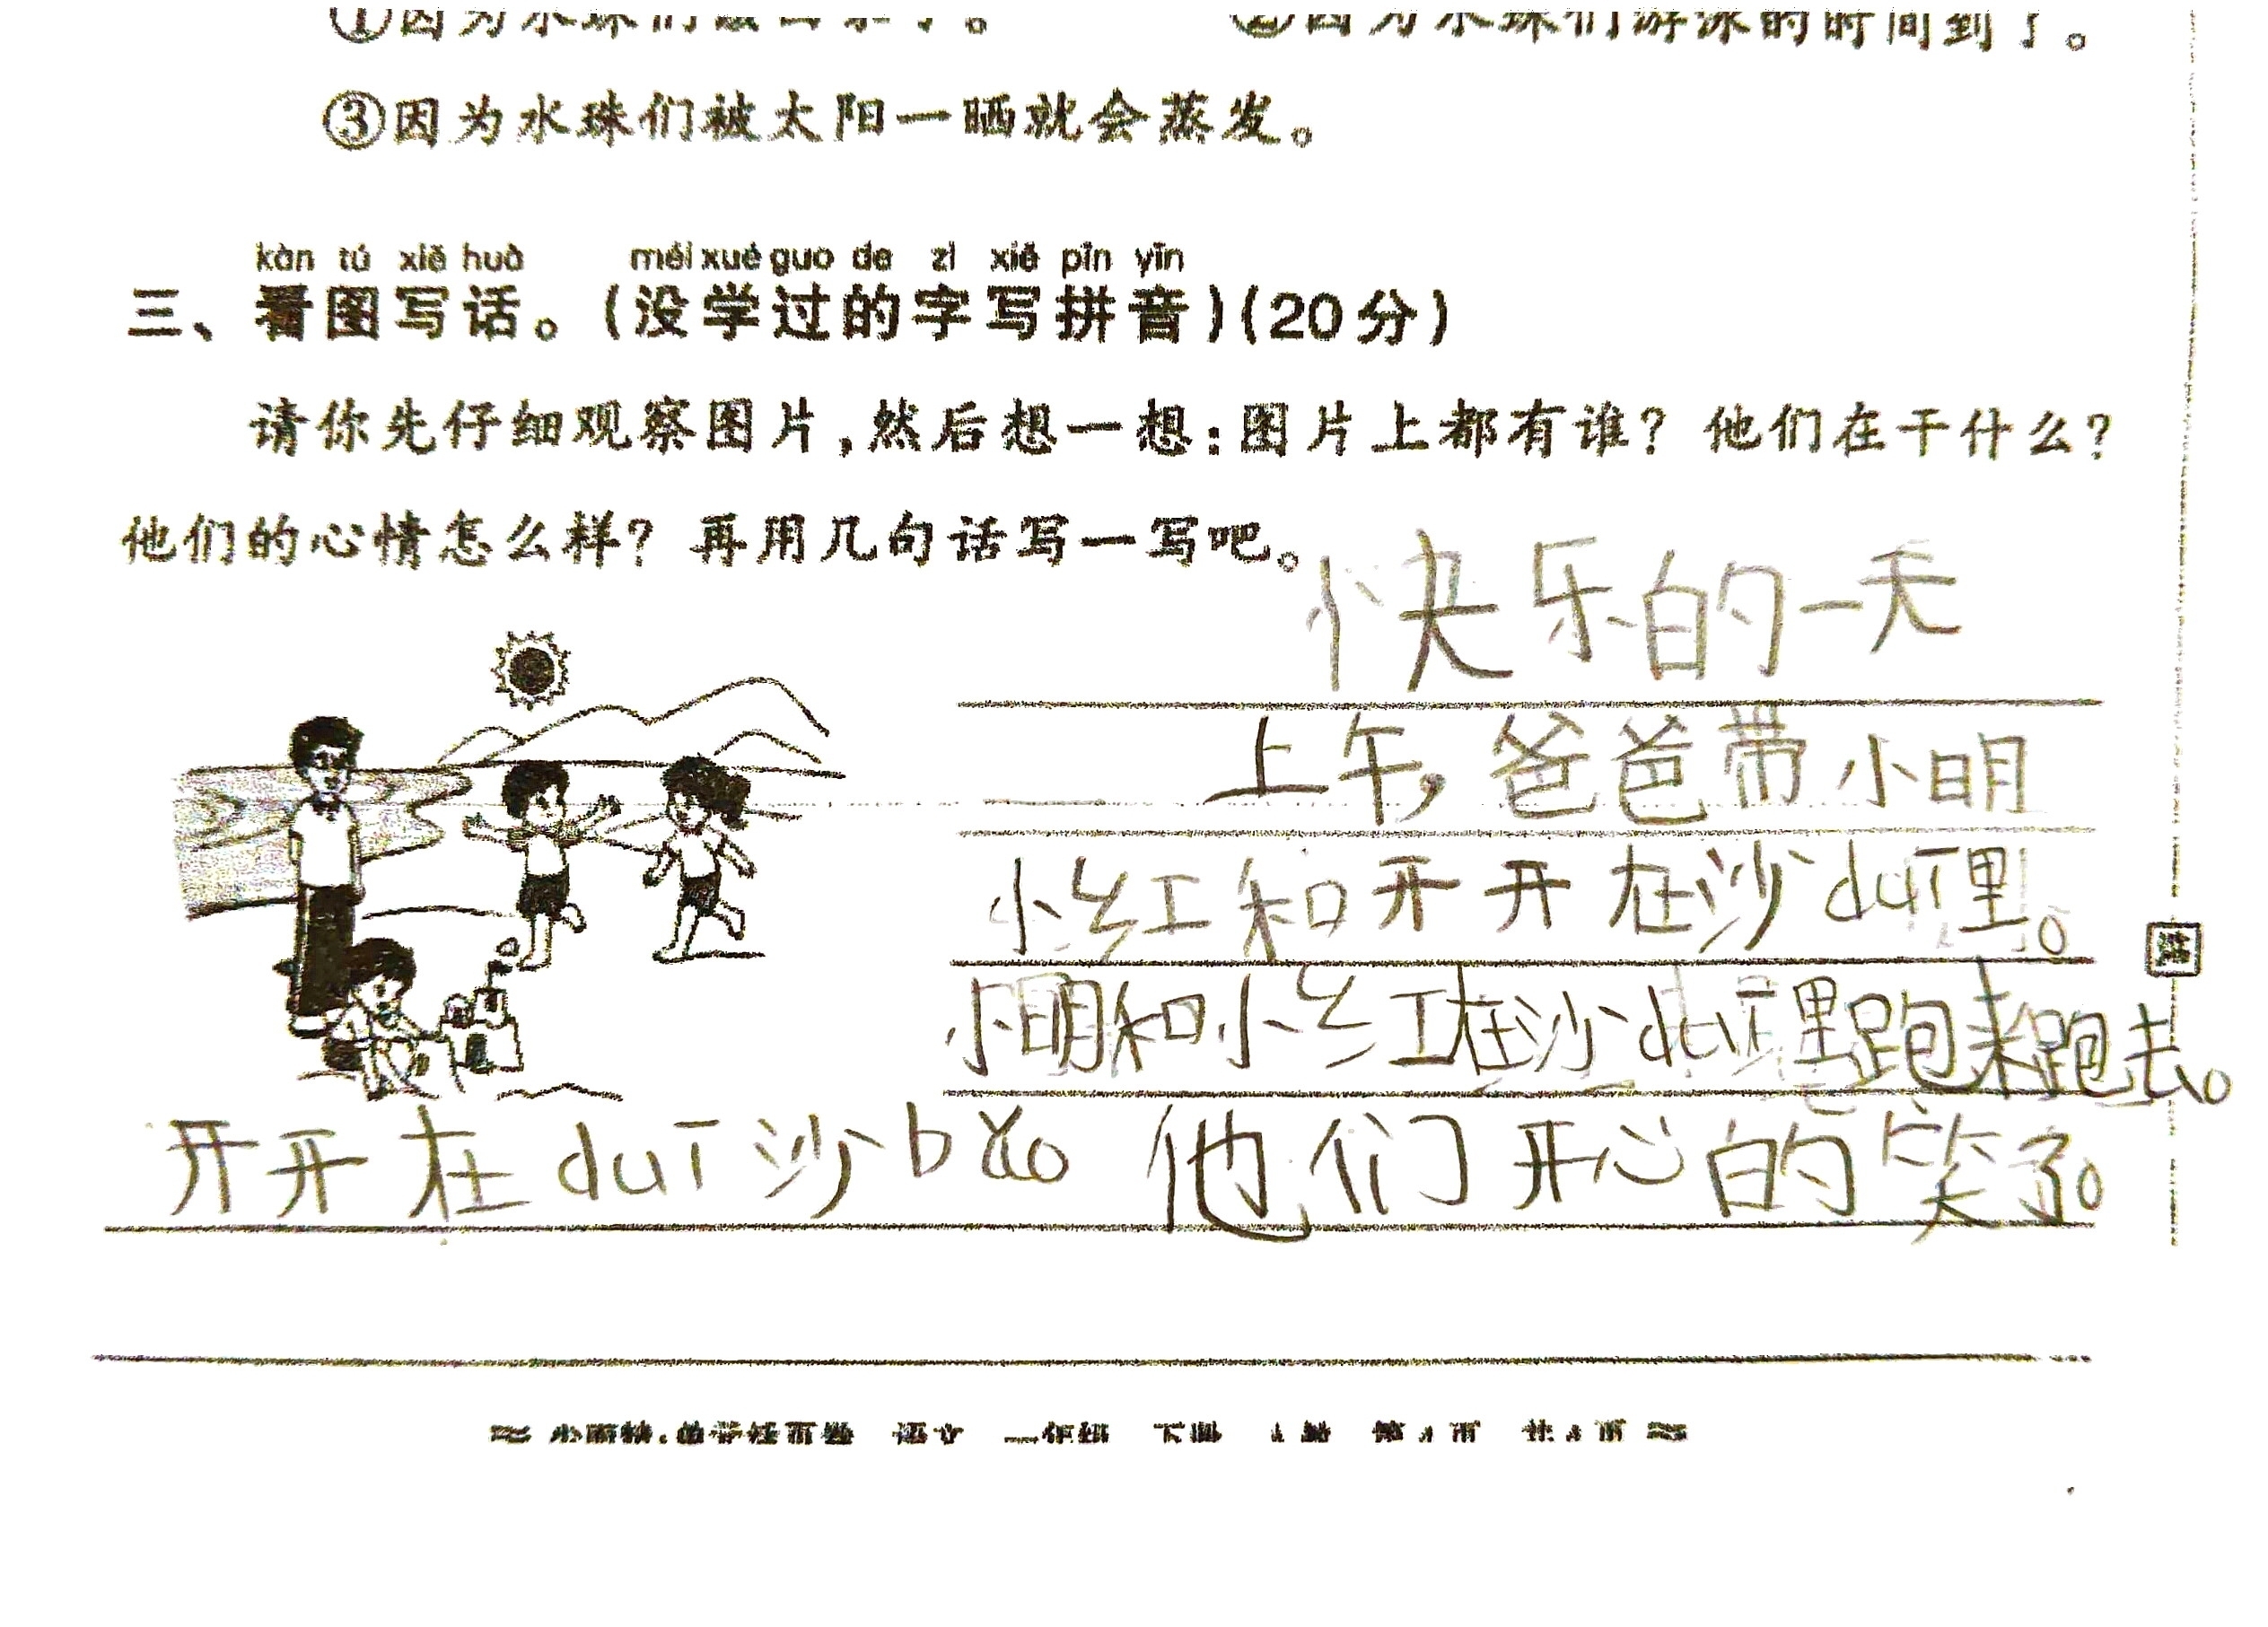 ③因为水珠们被太阳一晒就会蒸发。
kàn tú xiě huà méi xué guo de zì xiě pīn yīn
三、看图写话。(没学过的字写拼音)(20分)
请你先仔细观察图片,然后想一想:图片上都有谁?他们在干什么?
他们的心情怎么样?再用几句话写一写吧。
快乐的一天
上午,爸爸带小明
小红和开开在沙duī里。
小明和小红在沙duī里跑来跑去。
开开在duī沙bǎo 他们开心的笑了。